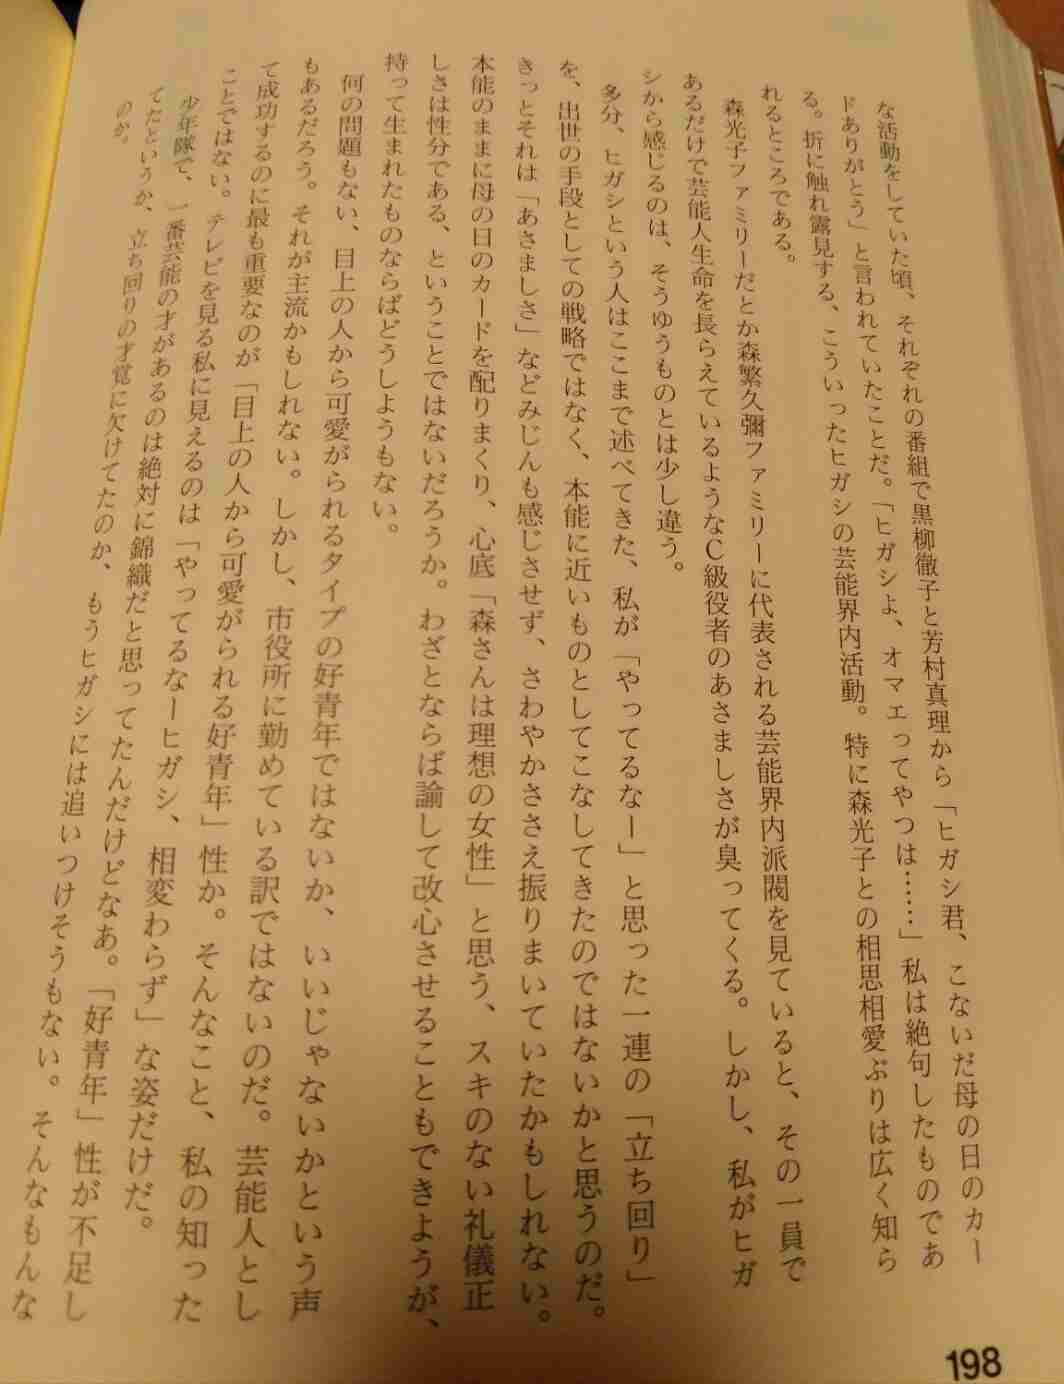 な活動をしていた頃、それぞれの番組で黒柳徹子と芳村真理から「ヒガシ君、こないだ母の日のカー
ドありがとう」と言われていたことだ。「ヒガシよ、オマエってやつは……」私は絶句したものであ
る。折に触れ露見する、こういったヒガシの芸能界内活動。特に森光子との相思相愛ぶりは広く知ら
れるところである。
森光子ファミリーだとか森繁久彌ファミリーに代表される芸能界内派閥を見ていると、その一員で
あるだけで芸能人生命を長らえているようなC級役者のあさましさが臭ってくる。しかし、私がヒガ
シから感じるのは、そうゆうものとは少し違う。
多分、ヒガシという人はここまで述べてきた、私が「やってるなー」と思った一連の「立ち回り」
を、出世の手段としての戦略ではなく、本能に近いものとしてこなしてきたのではないかと思うのだ。
きっとそれは「あさましさ」などみじんも感じさせず、さわやかささえ振りまいていたかもしれない。
本能のままに母の日のカードを配りまくり、心底「森さんは理想の女性」と思う、スキのない礼儀正
しさは性分である、ということではないだろうか。わざとならば諭して改心させることもできようが、
持って生まれたものならばどうしようもない。
何の問題もない、目上の人から可愛がられるタイプの好青年ではないか、いいじゃないかという声
もあるだろう。それが主流かもしれない。しかし、市役所に勤めている訳ではないのだ。芸能人とし
て成功するのに最も重要なのが「目上の人から可愛がられる好青年」性か。そんなこと、私の知った
ことではない。テレビを見る私に見えるのは「やってるなーヒガシ、相変わらず」な姿だけだ。
少年隊で、一番芸能の才があるのは絶対に錦織だと思ってたんだけどなあ。「好青年」性が不足し
てたというか、立ち回りの才覚に欠けてたのか、もうヒガシには追いつけそうもない。そんなもんな
のか。
198